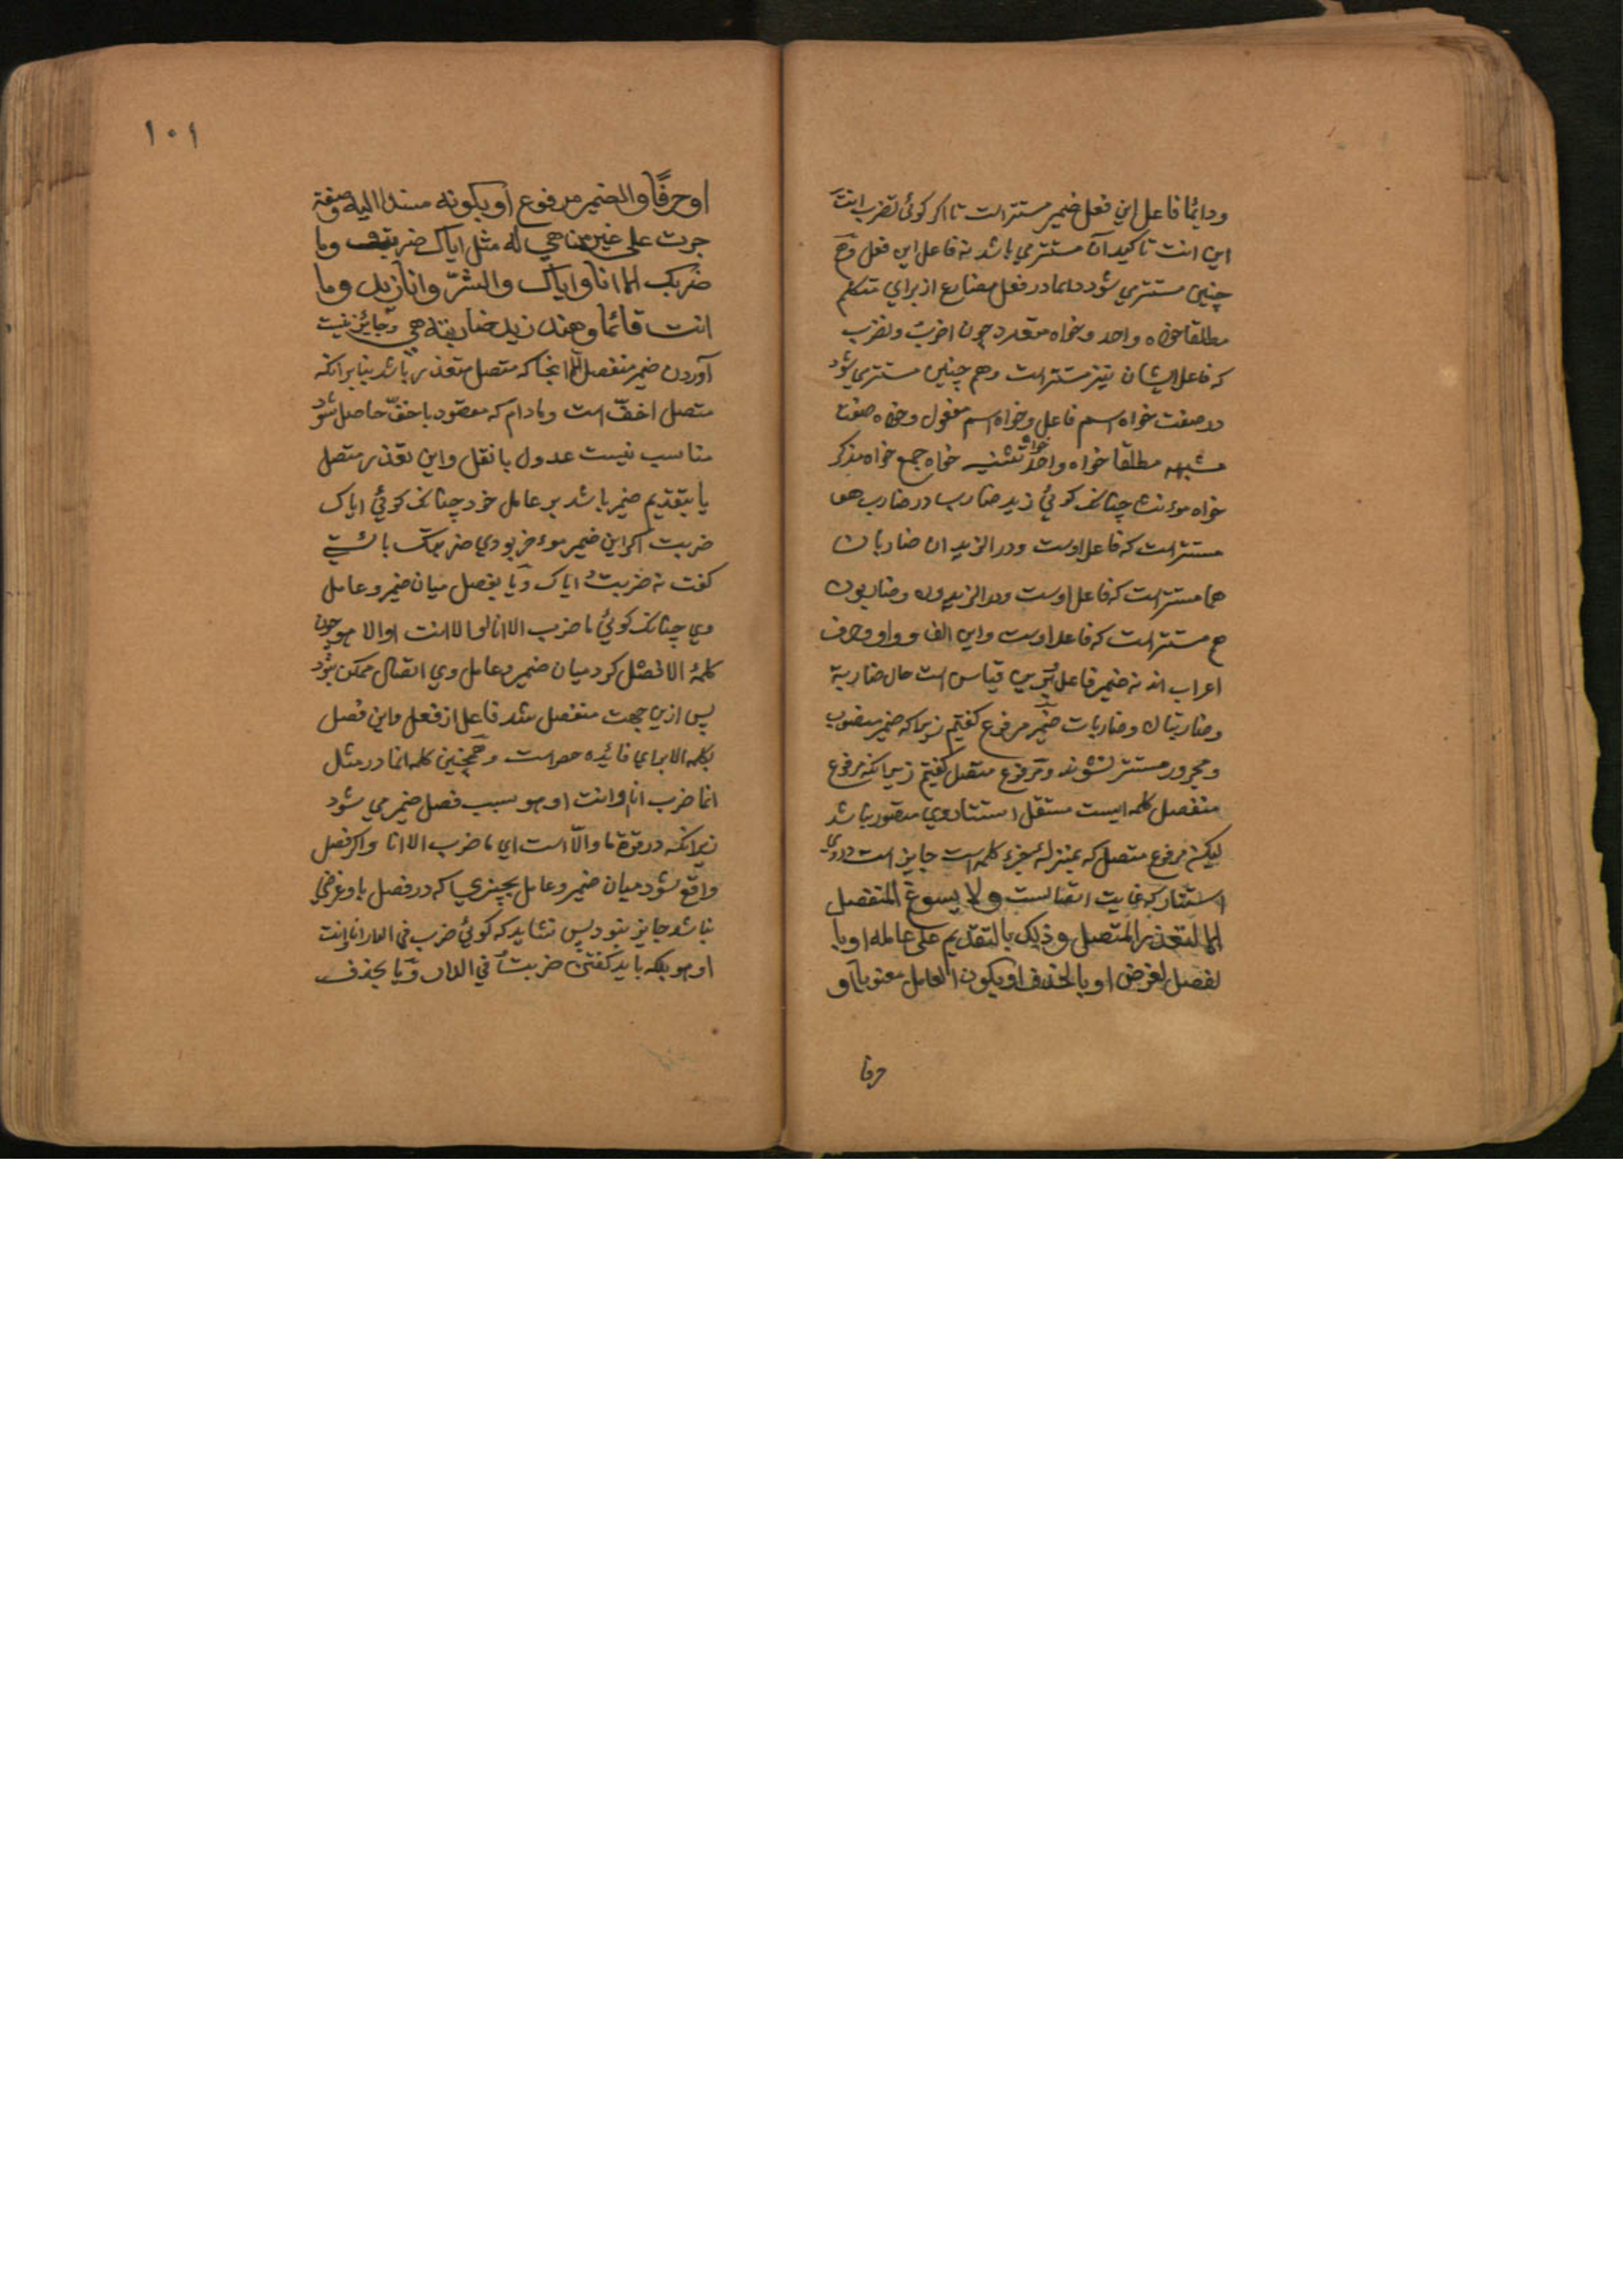 ودایما فاعل این فعل ضمیر مستتر است تا اکر کوئی تضرب انت
این انت تاکید آن مستتر می باشد نه فاعل این فعل وهم
چنین مستتر می شود دایما در فعل مضارع از برای متکلم
مطلقا خواه واحد وخواه متعدد چون اضرب ونضرب
که فاعل ایشان نیز مستتر است وهم چنین مستتر می شود
در صفت خواه اسم فاعل وخواه اسم مفعول وخواه صفت
مشبهه مطلقا خواه واحد خواه تثنیه خواه جمع خواه مذکر
خواه موءنث چنانک کوئی زید ضارب در ضارب هو
مستتر است که فاعل اوست ودر الزیدان ضاربان
هما مستتر است که فاعل اوست ودر الزیدون وضاربون
هم مستتر است که فاعل اوست واین الف وواو حرف
اعراب اند نه ضمیر فاعل وبرین قیاس است حال ضاربة
وضاربتان وضاربات ضمیر مرفوع کفتیم زیرا که ضمیر منصوب
ومجرور مستتر نشوند ومرفوع متصل کفتیم زیرانکه مرفوع
منفصل کلمه ایست مستقل استتار وی متصور نباشد
لیکن مرفوع متصل که بمنزلهٔ جزء کلمه است جایز است در وی
استتار که غایت اتصالست ولا یسوغ المنفصل
الا لتعذر المتصل وذلک بالتقدیم علی عامله او با
لفصل لغرض او بالحذف او بکون العامل معنویا او
حرفا
۱۰۱
او حرفًا والضمیر مرفوع او بکونه مسندا الیه صفة
جرت علی غیر من هی له مثل ایاک ضربت وما
ضربک الا انا وایاک والشرّ وانا زید وما
انت قائما وهند زید ضاربته هی وجائز نیست
آوردن ضمیر منفصل الا انجا که متصل متعذر باشد بنا برانکه
متصل اخفّ است ومادام که مقصود باخفّ حاصل شود
مناسب نیست عدول باثقل واین تعذر متصل
یا بتقدیم ضمیر باشد بر عامل خود چنانک کوئی ایاک
ضربت اکر این ضمیر موءخر بودی ضربتک بایستی
کفت نه ضربت ایاک ویا بفصل میان ضمیر وعامل
وی چنانک کوئی ما ضرب الا انا او الا انت او الا هو چون
کلمهٔ الا فصل کرد میان ضمیر وعامل وی اتصال ممکن نبود
پس ازین جهت منفصل شد فاعل از فعل واین فصل
بکلمه الا برای فائیده حصر است وهمچنین کلمه انما در مثل
انما ضرب انا وانت او هو سبب فصل ضمیر می شود
زیرانکه در قوة ما والّا است ای ما ضرب الا انا واکر فصل
واقع شود میان ضمیر وعامل بچیزی که در فصل باو غرضی
نباشد جایز نبود پس نشاید که کوئی ضرب فی الدار انا وانت
او هو بلکه باید کفتن ضربت فی الدار ویا بحذف